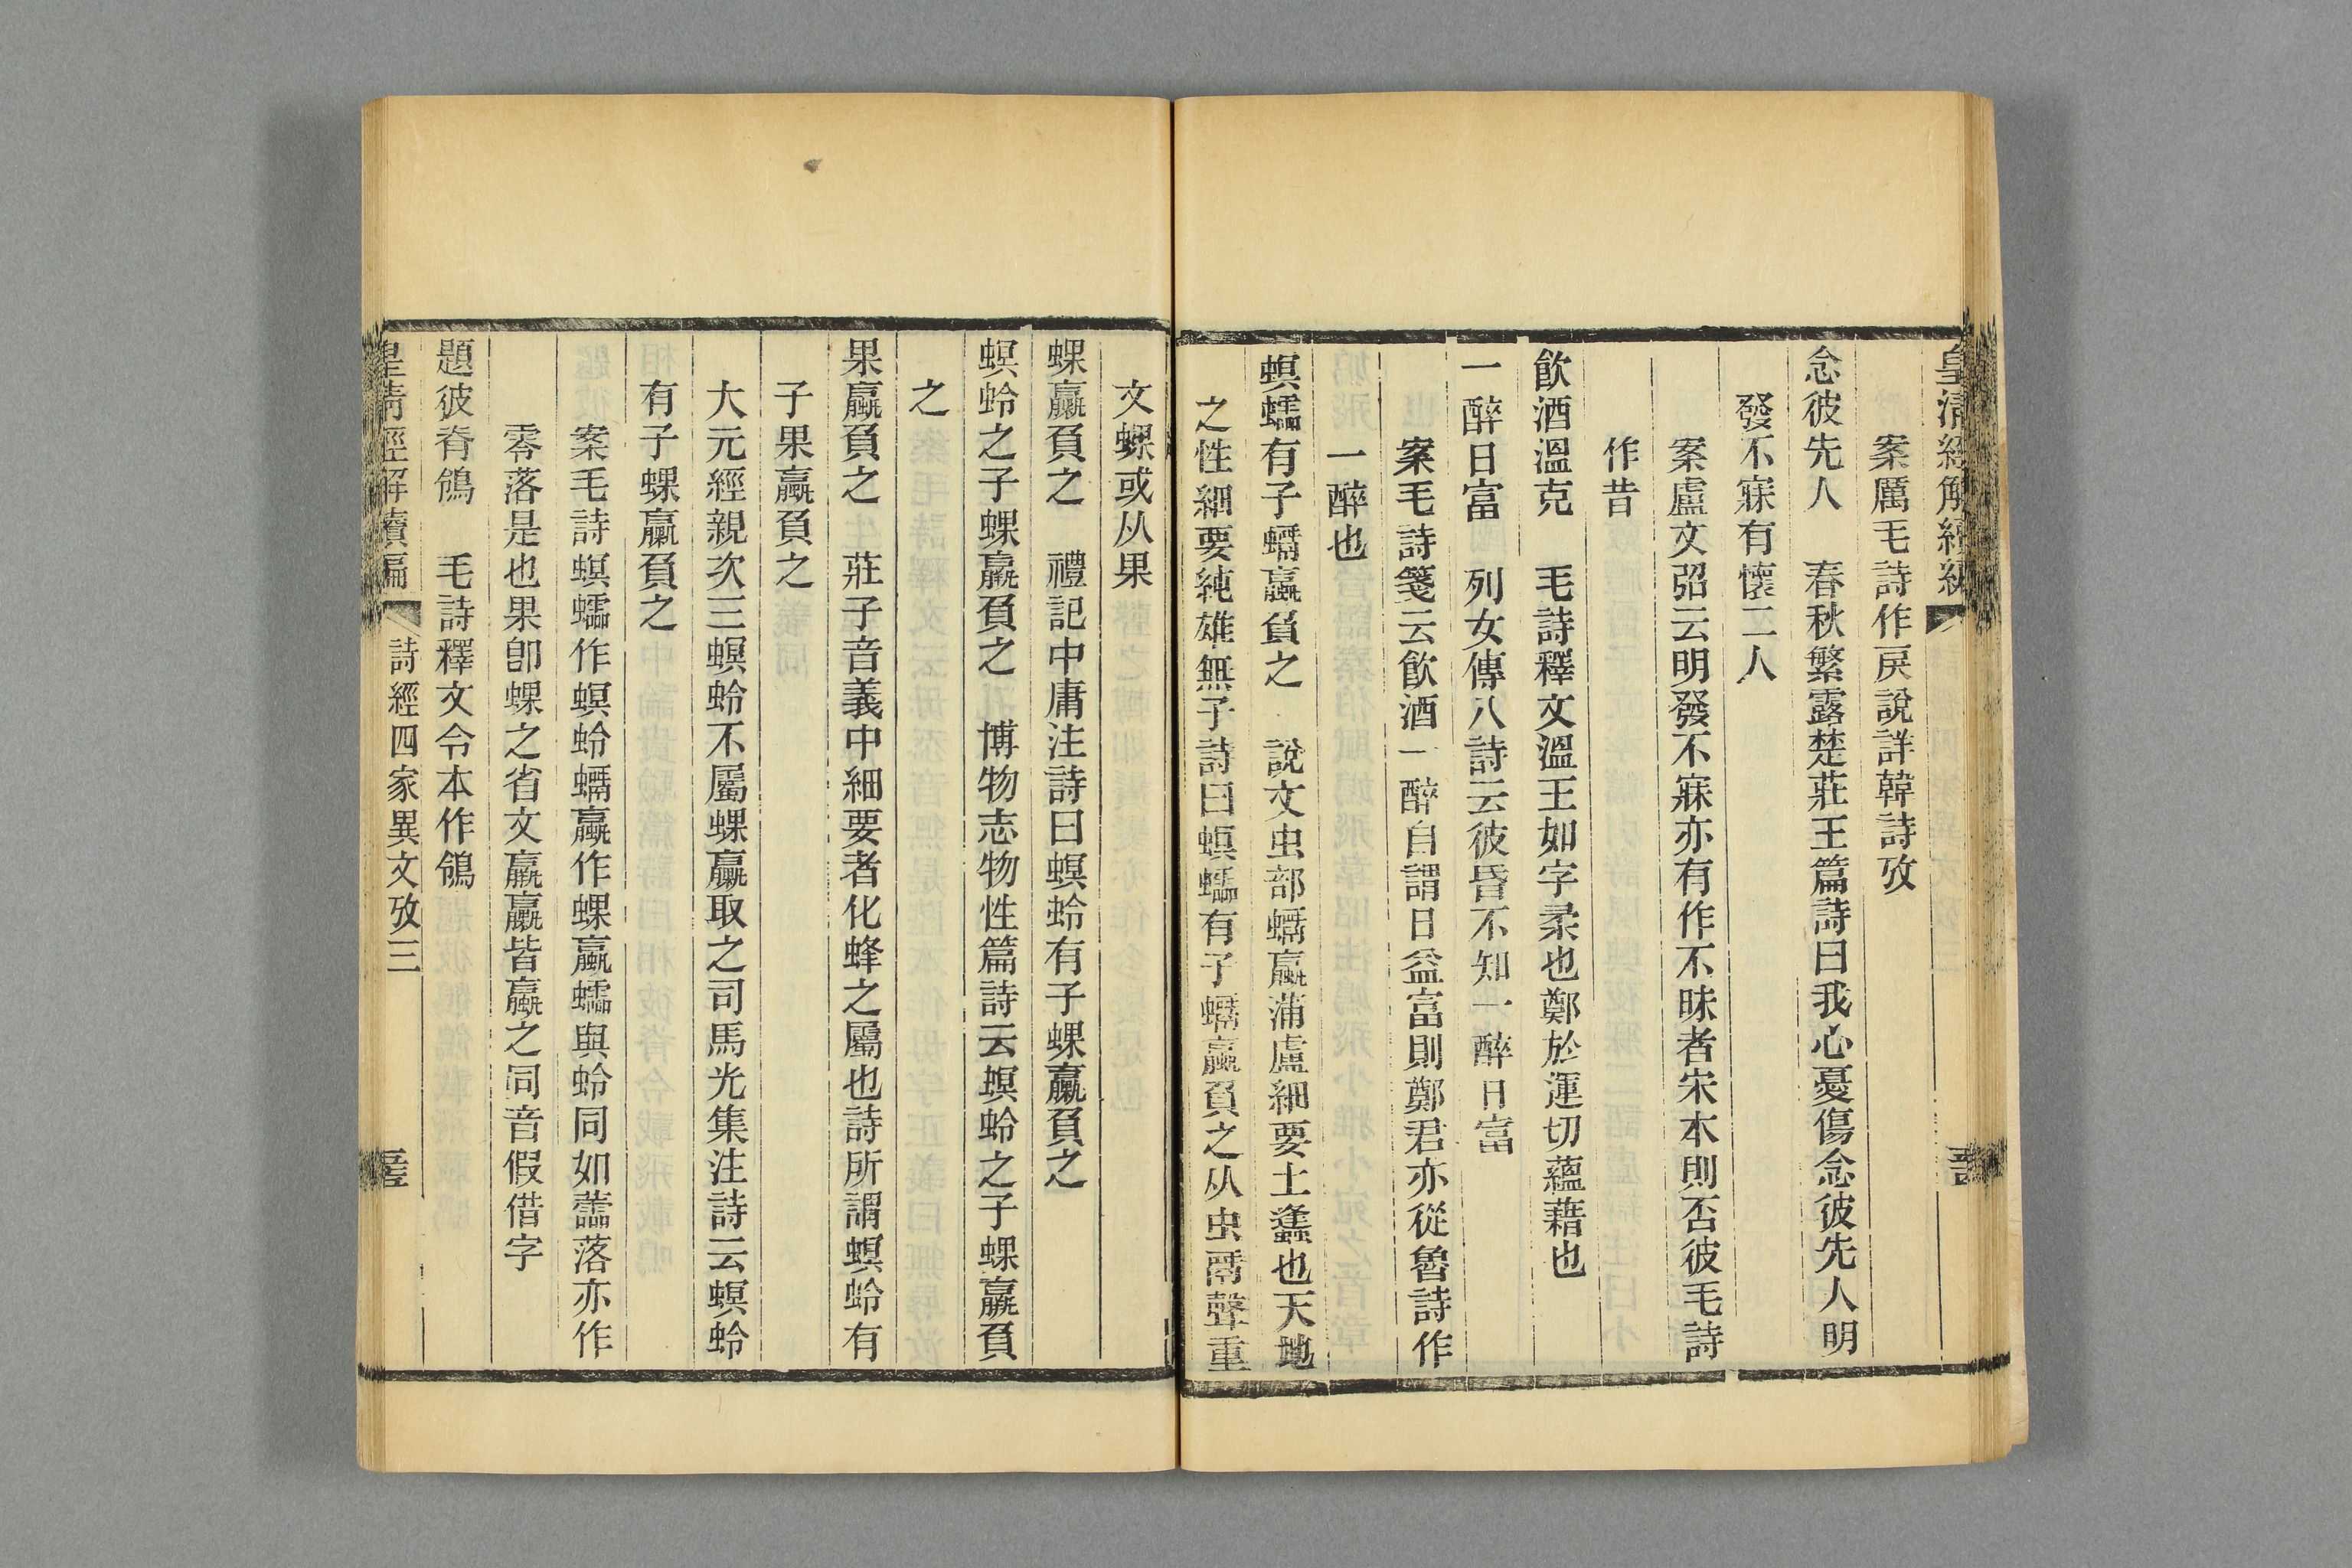 皇清經解續編
案厲毛詩作戾說詳韓詩攷
念彼先人　春秋繁露楚莊王篇詩曰我心憂傷念彼先人明
發不寐有懷二人
案盧文弨云明發不寐亦有作不昧者宋本則否彼毛詩
作昔
飲酒溫克　毛詩釋文溫王如字柔也鄭於運切蘊藉也
一醉日富　列女傳八詩云彼昏不知一醉日富
案毛詩箋云飲酒一醉自謂日益富則鄭君亦從魯詩作
一醉也
螟蠕有子蠣蠃負之　說文虫部蠣蠃蒲盧細要土蠭也天地
之性細要純雄無子詩曰螟蠕有子蠣蠃負之从虫𩰫聲重
文螺或从果
蜾蠃負之　禮記中庸注詩曰螟蛉有子蜾蠃負之
螟蛉之子蜾蠃負之　博物志物性篇詩云螟蛉之子蜾蠃負
之
果蠃負之　莊子音義中細要者化蜂之屬也詩所謂螟蛉有
子果蠃負之
大元經親次三螟蛉不屬蜾蠃取之司馬光集注詩云螟蛉
有子蜾蠃負之
案毛詩螟蠕作螟蛉蠣蠃作蜾蠃蠕與蛉同如蘦落亦作
零落是也果卽蜾之省文蠃蠃皆蠃之同音假借字
題彼脊鴒　毛詩釋文令本作鴒
皇清經解續編
詩經四家異文攷三